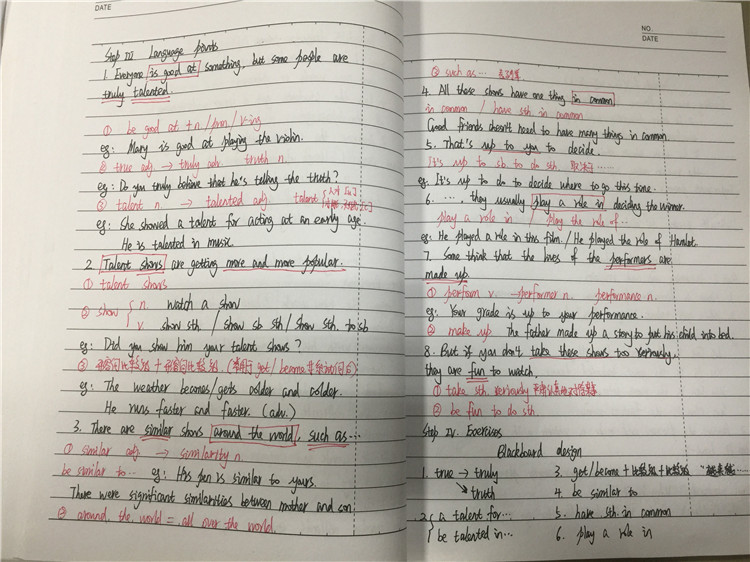 DATE
Step III Language points
1. Everyone is good at something, but some people are
truly talented.
① be good at + n / pron / v-ing
eg: Mary is good at playing the violin.
② true adj → truly adv. truth n.
eg: Do you truly believe that he's telling the truth?
③ talent n → talented adj talent
eg: She showed a talent for acting at an early age.
He is talented in music.
2. Talent shows are getting more and more popular.
① talent shows
② show { n. watch a show
v. show sth. / show sb sth / show sth. to sb
eg: Did you show him your talent shows?
③ 形容词比较级 + 形容词比较级 (常用于 got / become 等系动词后)
eg: The weather becomes/gets colder and colder.
He runs faster and faster. (adv.)
3. There are similar shows around the world, such as...
① similar adj → similarity n.
be similar to... eg: His pen is similar to yours.
There were significant similarities between mother and son
② around the world = all over the world.
NO.
DATE
③ such as...
4. All these shows have one thing in common
in common / have sth. in common
Good friends doesn't need to have many things in common.
5. That's up to you to decide.
It's up to sb to do sth. 取决于...
eg. It's up to do to decide where to go this time.
6. ...., they usually play a role in deciding the winner.
play a role in / play the role of...
eg: He played a role in this film. / He played the role of Hamlet.
7. Some think that the lives of the performers are
made up
① perform v. — performer n. performance n.
eg: Your grade is up to your performance.
② make up The father made up a story to put his child into bed.
8. But if you don't take these shows too seriously,
they are fun to watch.
① take sth. seriously
② be fun to do sth.
Step IV. Exercises
Blackboard design
1. true → truly
↘ truth
2 { a talent for...
be talented in...
3. got / become + 比较级 + 比较级
4. be similar to
5. have sth. in common
6. play a role in